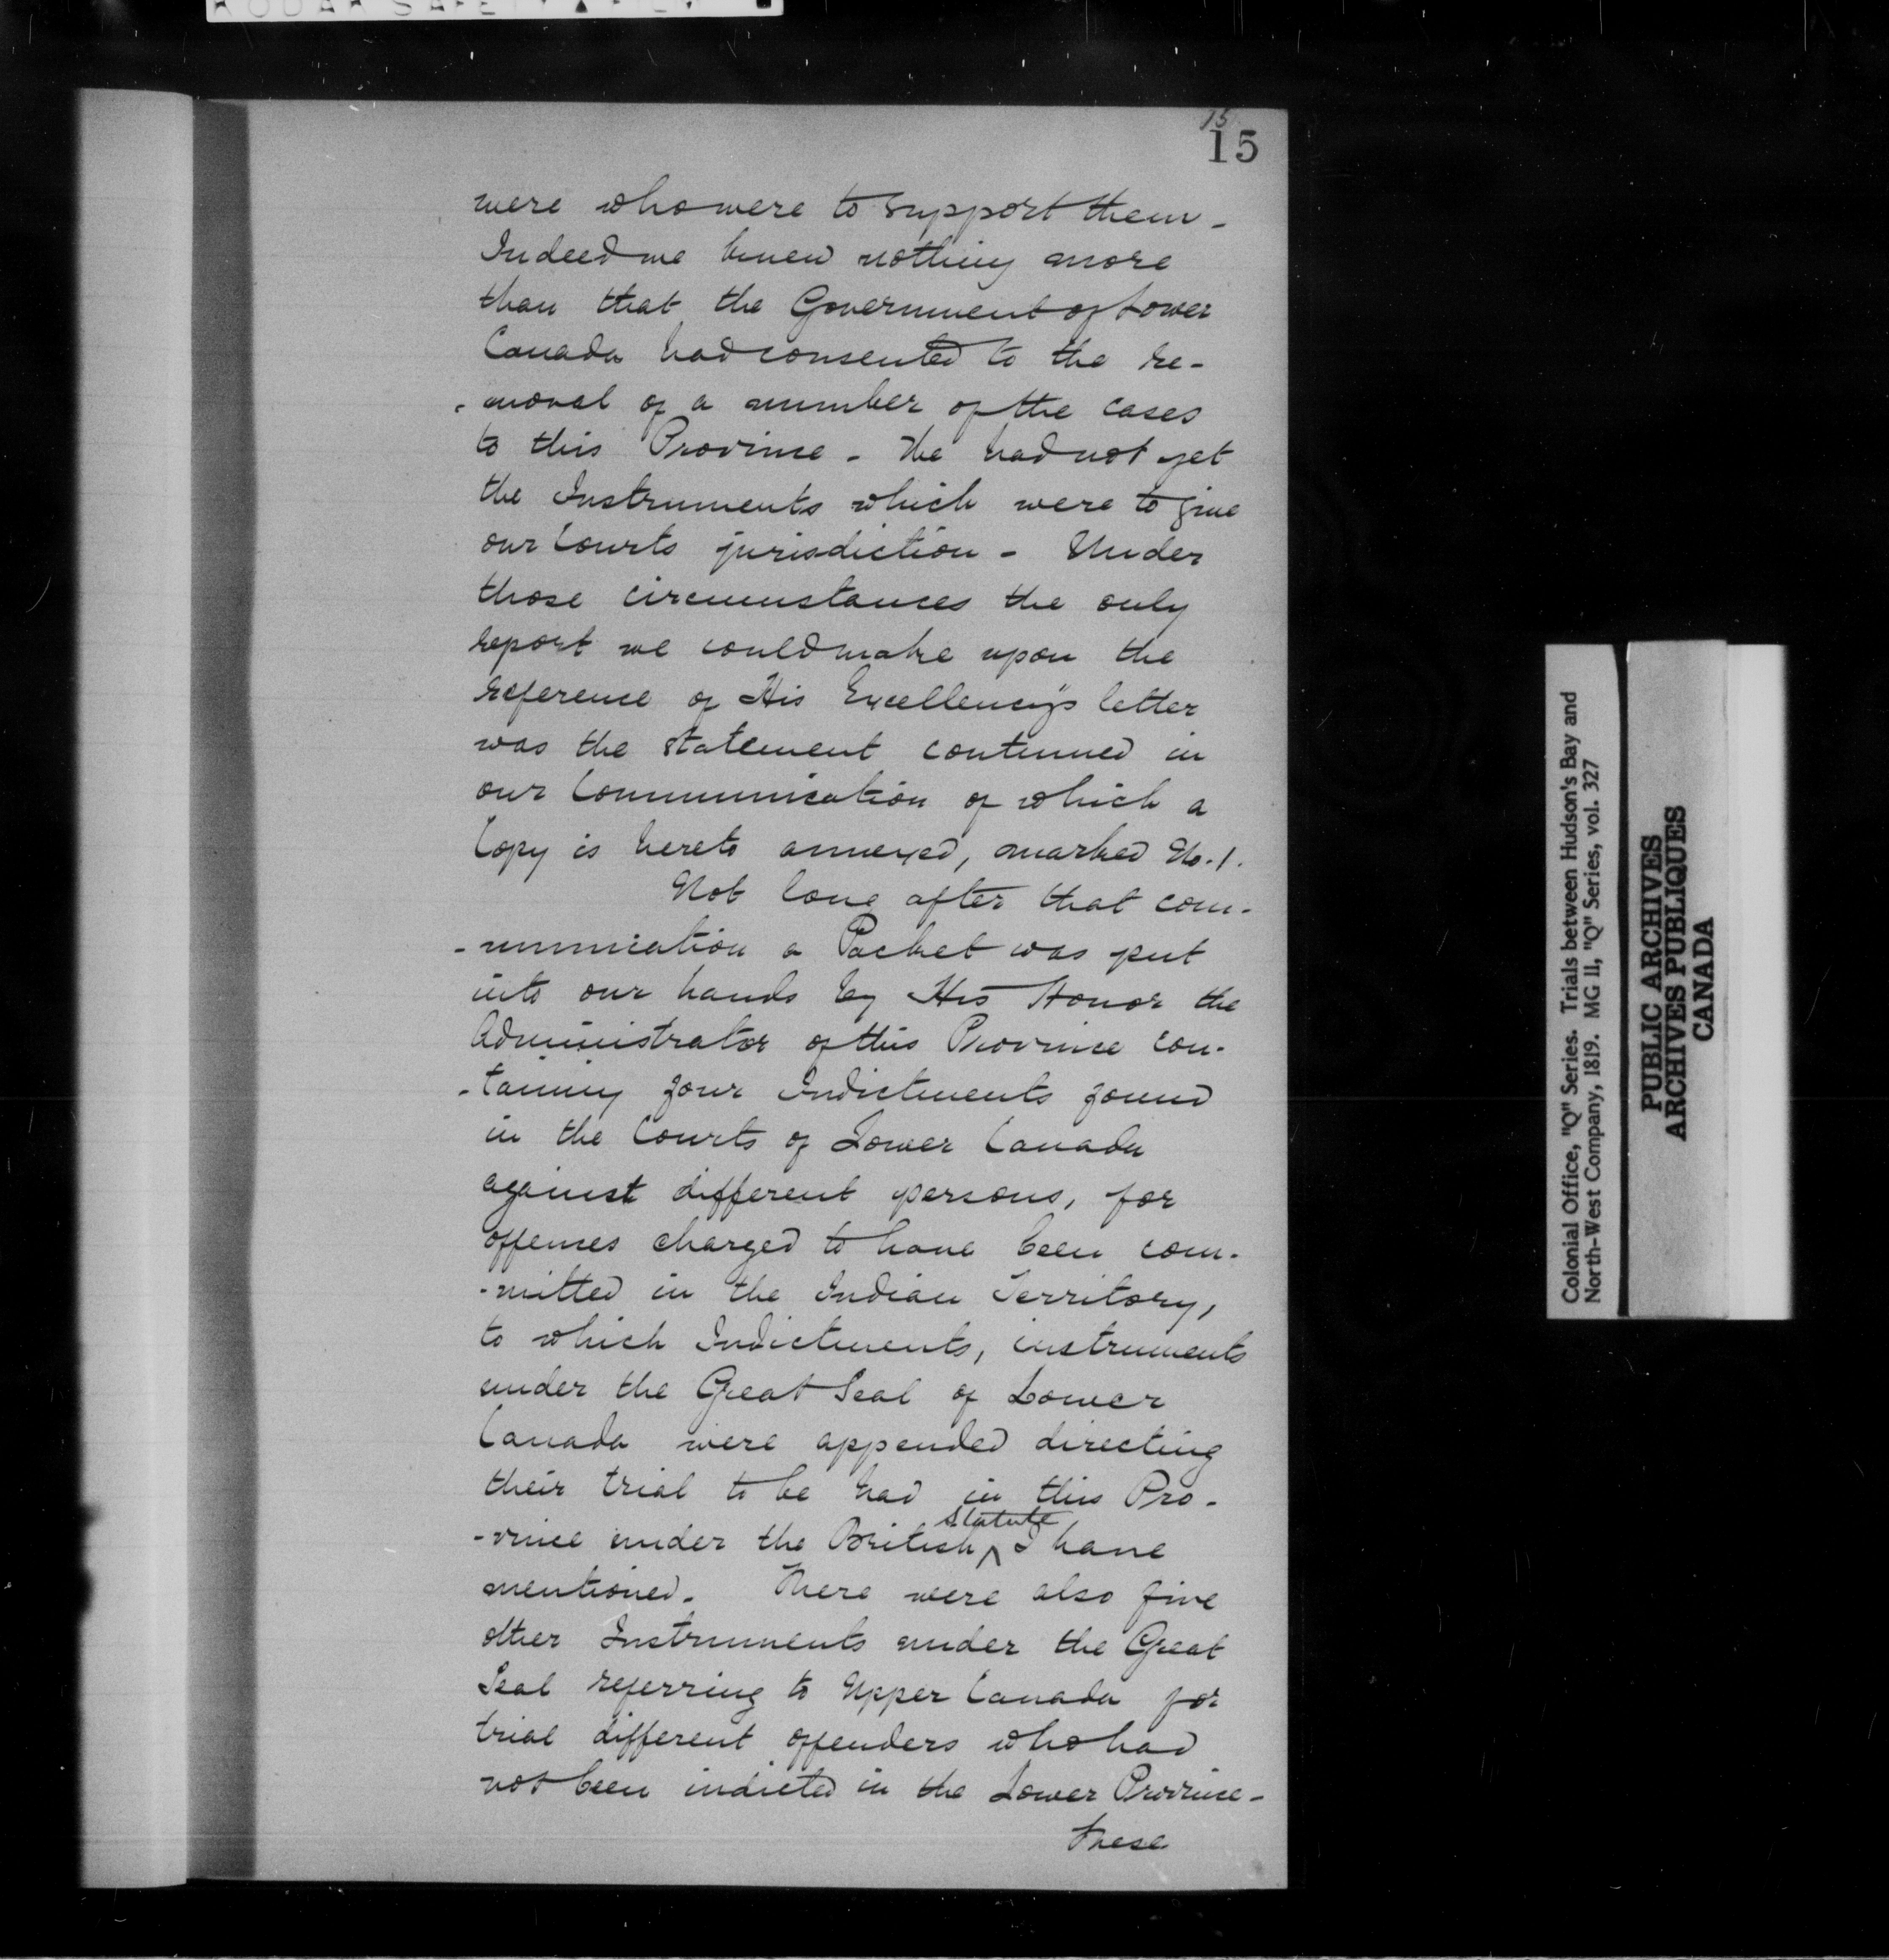 15
15
were who were to support them -
Indeed we knew nothing more
than that the Government of Lower
Canada had consented to the re-
- moval of a number of the cases
to this Province - We had not yet
the Instruments which were to give
our Courts jurisdiction - Under
those circumstances the only
report we could make upon the
reference of His Excellency's letter
was the statement contained in
our Communication of which a
Copy is hereto annexed, marked No. 1.
Not long after that com-
- munication a Packet was put
into our hands by His Honor the
Administrator of this Province con-
- taining four Indictments found
in the Courts of Lower Canada
against different persons, for
offenses charged to have been com-
- mitted in the Indian Territory,
to which Indictments, instruments
under the Great Seal of Lower
Canada were appended directing
their trial to be had in this Pro-
- vince under the British ^ Statute I have
mentioned. There were also five
other Instruments under the Great
Seal referring to Upper Canada for
trial different offenders who had
not been indicted in the Lower Province -
These
Colonial Office, "Q" Series. Trials between Hudson's Bay and
North-West Company, 1819. MG 11, "Q" Series, vol. 327
PUBLIC ARCHIVES
ARCHIVES PUBLIQUES
CANADA